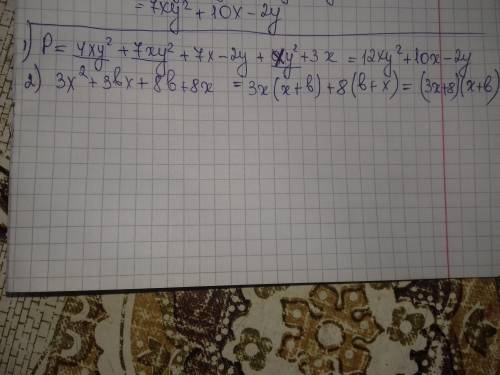 = 7xy² + 10x - 2y
1) P = 4xy² + 7xy² + 7x - 2y + xy² + 3x = 12xy² + 10x - 2y
2) 3x² + 3bx + 8b + 8x = 3x(x+b) + 8(b+x) = (3x+8)(x+b)